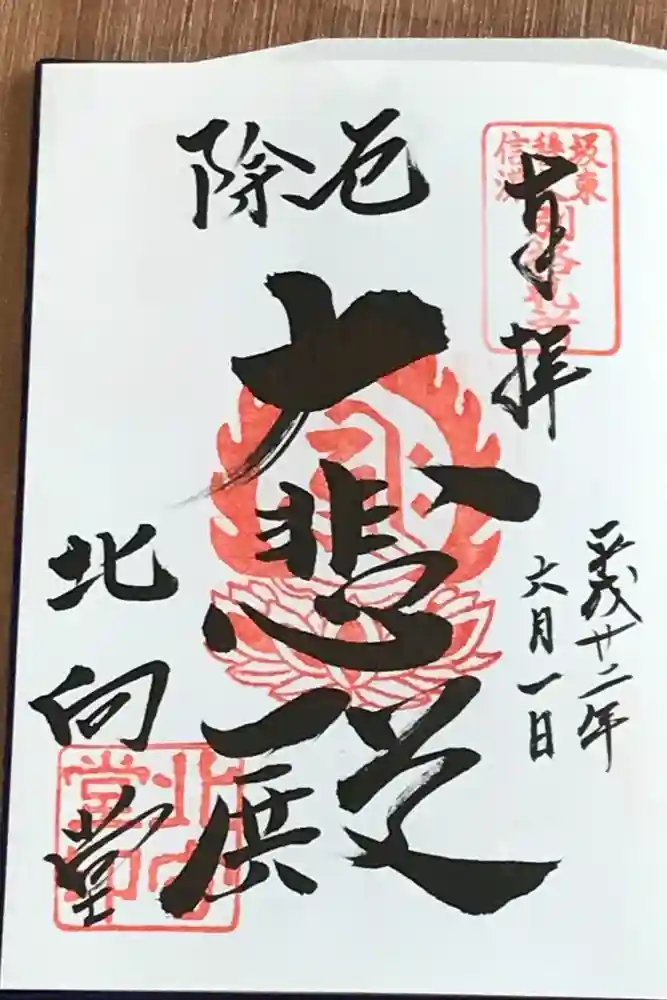 坂東
秩父
信濃
別格札所
奉拝
平成廿二年
六月一日
厄除
大悲殿
北向堂
北向
堂印